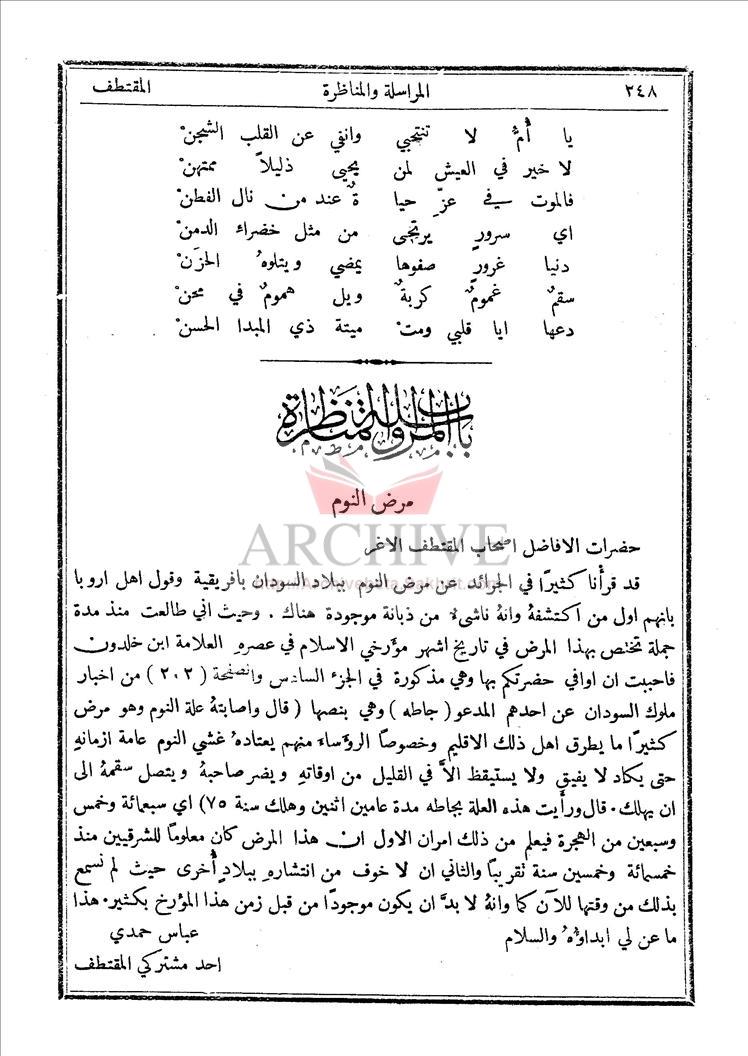 ٢٤٨ المراسلة والمناظرة المقتطف
يا أُمُّ لا تنتحبي وانفي عن القلب الشجنْ
لا خير في العيش لمن يحيى ذليلاً ممتهنْ
فالموت في عزِّ حيا ةٌ عند من نال الفطنْ
اي سرورٍ يرتجى من مثل خضراء الدمنْ
دنيا غرورٌ صفوها يمضي ويتلوهُ الحزَنْ
سقمٌ غمومٌ كربةٌ ويل همومٌ في محنْ
دعها ايا قلبي ومتْ ميتة ذي المبدا الحسنْ
باب المراسلة والمناظرة
مرض النوم
ARCHIVE
حضرات الافاضل اصحاب المقتطف الاغر
قد قرأنا كثيرًا في الجرائد عن مرض النوم ببلاد السودان بافريقية وقول اهل اروبا
بانهم اول من اكتشفهُ وانهُ ناشىءٌ من ذبانة موجودة هناك . وحيث اني طالعت منذ مدة
جملة تختص بهذا المرض في تاريخ اشهر مؤرخي الاسلام في عصرهِ العلامة ابن خلدون
فاحببت ان اوافي حضرتكم بها وهي مذكورة في الجزء السادس والصفحة (٢٠٢) من اخبار
ملوك السودان عن احدهم المدعو (جاطه) وهي بنصها (قال واصابتهُ علة النوم وهو مرض
كثيرًا ما يطرق اهل ذلك الاقليم وخصوصًا الرؤساء منهم يعتادهُ غشي النوم عامة ازمانهِ
حتى يكاد لا يفيق ولا يستيقظ الاَّ في القليل من اوقاتهِ ويضر صاحبهُ ويتصل سقمهُ الى
ان يهلك . قال ورأيت هذه العلة بجاطه مدة عامين اثنين وهلك سنة ٧٥) اي سبعمائة وخمس
وسبعين من الهجرة فيعلم من ذلك امران الاول ان هذا المرض كان معلومًا للشرقيين منذ
خمسمائة وخمسين سنة تقريبًا والثاني ان لا خوف من انتشارهِ ببلادٍ أُخرى حيث لم نسمع
بذلك من وقتها للآن كما وانهُ لا بدَّ ان يكون موجودًا من قبل زمن هذا المؤرخ بكثير . هذا
ما عن لي ابداؤهُ والسلام عباس حمدي
احد مشتركي المقتطف